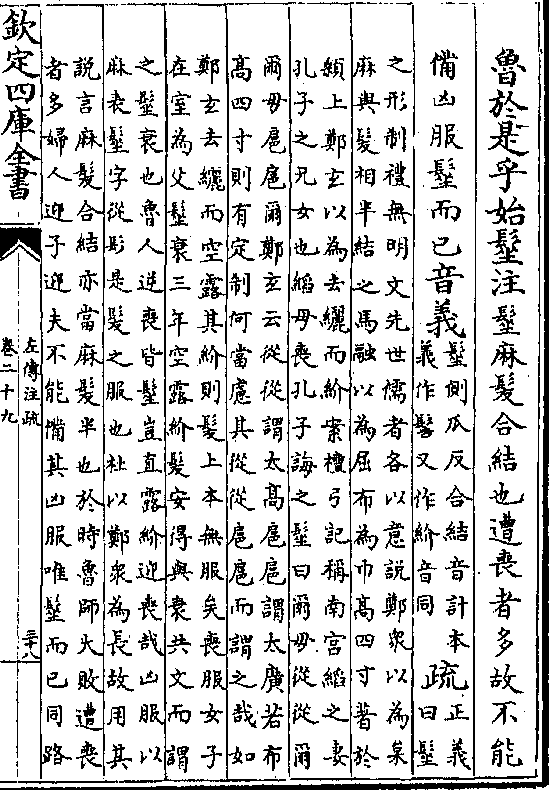 魯於是乎始髽注髽麻髮合結也遭喪者多故不能
備凶服髽而已音義髽側瓜反合結音計本
義作髻又作紒音同
疏正義
曰髽
之形制禮無明文先世儒者各以意說鄭衆以為枲
麻與髮相半結之馬融以為屈布為巾高四寸著於
顙上鄭玄以為去纚而紒案檀弓記稱南宫縚之妻
孔子之兄女也縚母喪孔子誨之髽曰爾毋從從爾
爾毋扈扈爾鄭玄云從從謂太高扈扈謂太廣若布
高四寸則有定制何當慮其從從扈扈而謂之哉如
鄭玄去纚而空露其紒則髮上本無服矣喪服女子
在室為父髽衰三年空露紒髮安得與衰共文而謂
之髽衰也魯人逆喪皆髽豈直露紒迎喪哉凶服以
麻表髽字從髟是髮之服也杜以鄭衆為長故用其
說言麻髮合結亦當麻髮半也於時魯師大敗遭喪
者多婦人迎子迎夫不能備其凶服唯髽而已同路
欽定四庫全書
左傳注疏
卷二十九
三十八